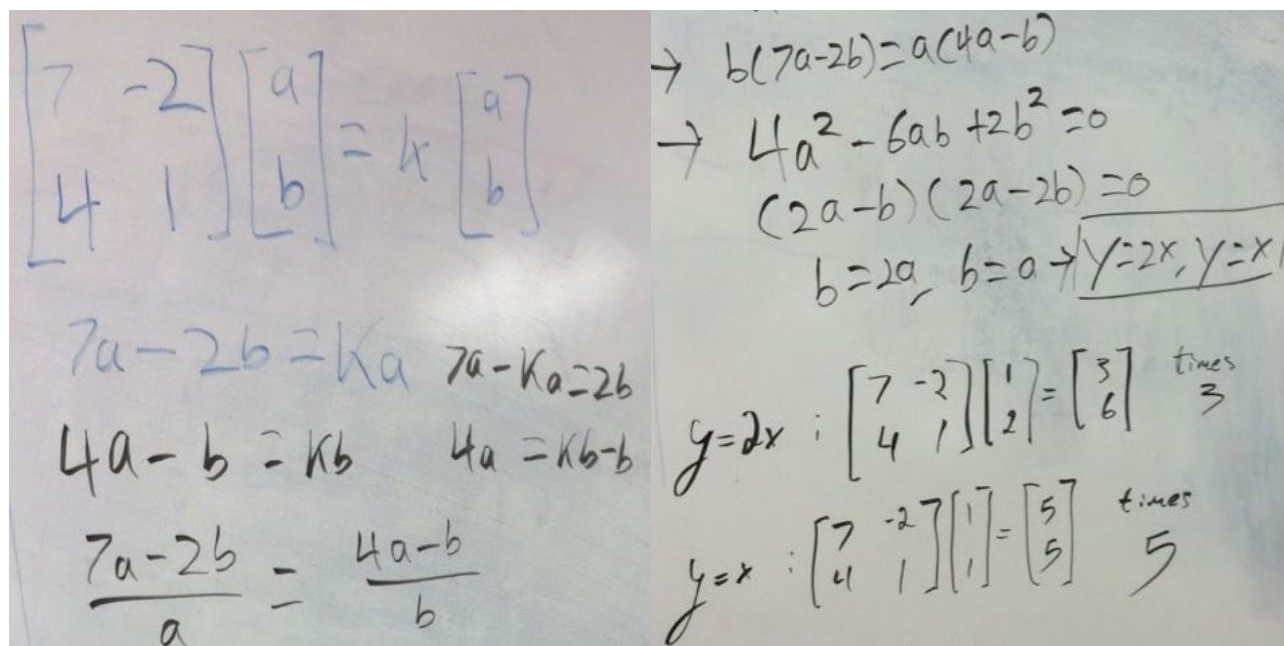 [7 -2; 4 1] [a; b] = k [a; b]
7a - 2b = Ka   7a - Ka = 2b
4a - b = Kb   4a = Kb - b
(7a - 2b)/a = (4a - b)/b
→ b(7a-2b)=a(4a-b)
→ 4a² - 6ab + 2b² = 0
(2a-b)(2a-2b)=0
b=2a, b=a → y=2x, y=x
y=2x : [7 -2; 4 1] [1; 2] = [3; 6] times 3
y=x : [7 -2; 4 1] [1; 1] = [5; 5] times 5